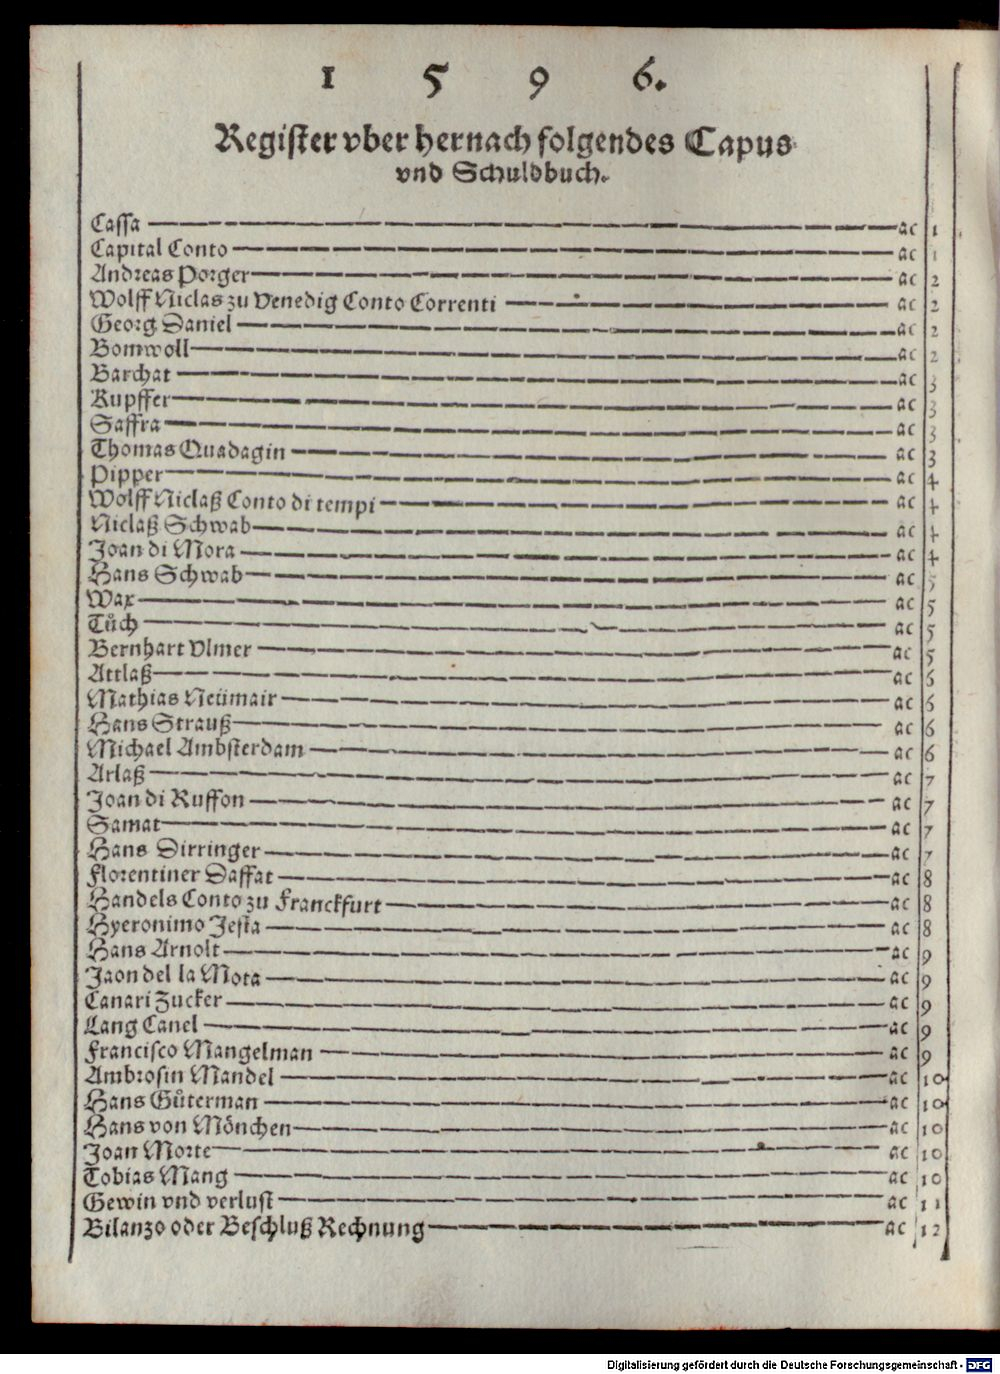 1 5 9 6.
Register vber hernach folgendes Capus
vnd Schuldbuch.
Cassa ac 1
Capital Conto ac 1
Andreas Porger ac 2
Wolff Niclas zu Venedig Conto Correnti ac 2
Georg Daniel ac 2
Bomwoll ac 2
Barchat ac 3
Kupffer ac 3
Saffra ac 3
Thomas Quadagin ac 3
Pipper ac 4
Wolff Niclaß Conto di tempi ac 4
Niclaß Schwab ac 4
Joan di Mora ac 4
Hans Schwab ac 5
Wax ac 5
Tůch ac 5
Bernhart Vlmer ac 5
Attlaß ac 6
Mathias Neümair ac 6
Hans Strauß ac 6
Michael Ambsterdam ac 6
Arlaß ac 7
Joan di Ruffon ac 7
Samat ac 7
Hans Dirringer ac 7
Florentiner Daffat ac 8
Handels Conto zu Franckfurt ac 8
Hyeronimo Jesta ac 8
Hans Arnolt ac 9
Jaon del la Mota ac 9
Canari Zucker ac 9
Lang Canel ac 9
Francisco Mangelman ac 9
Ambrosin Mandel ac 10
Hans Gůterman ac 10
Hans von Mönchen ac 10
Joan Morte ac 10
Tobias Mang ac 10
Gewin vnd verlust ac 11
Bilanzo oder Beschluß Rechnung ac 12
Digitalisierung gefördert durch die Deutsche Forschungsgemeinschaft - DFG